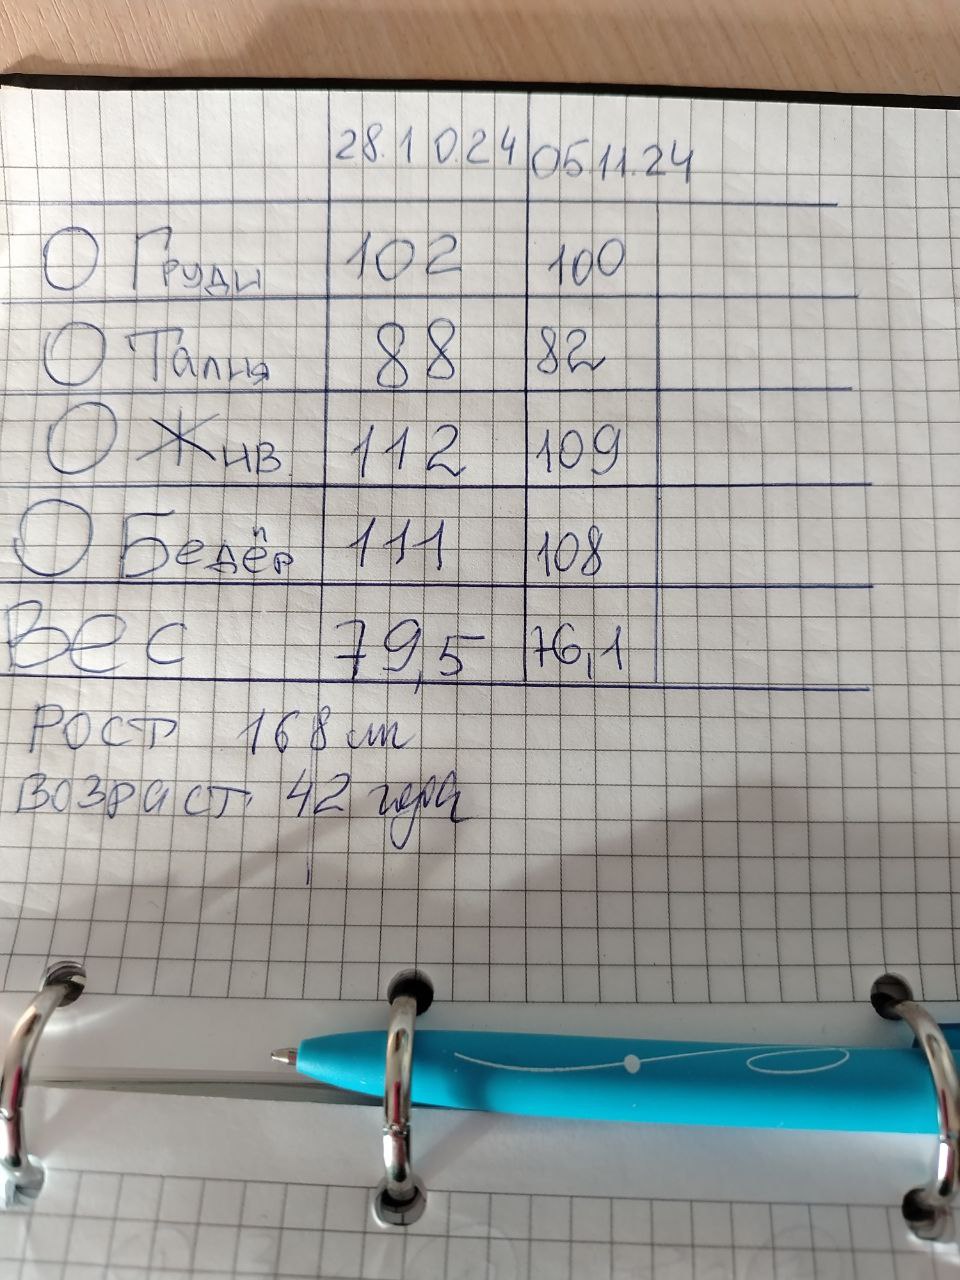 28.10.24 05.11.24
О Груди 102 100
О Талия 88 82
О Жив. 112 109
О Бедёр 111 108
Вес 79,5 76,1
Рост 168 см
Возраст 42 года